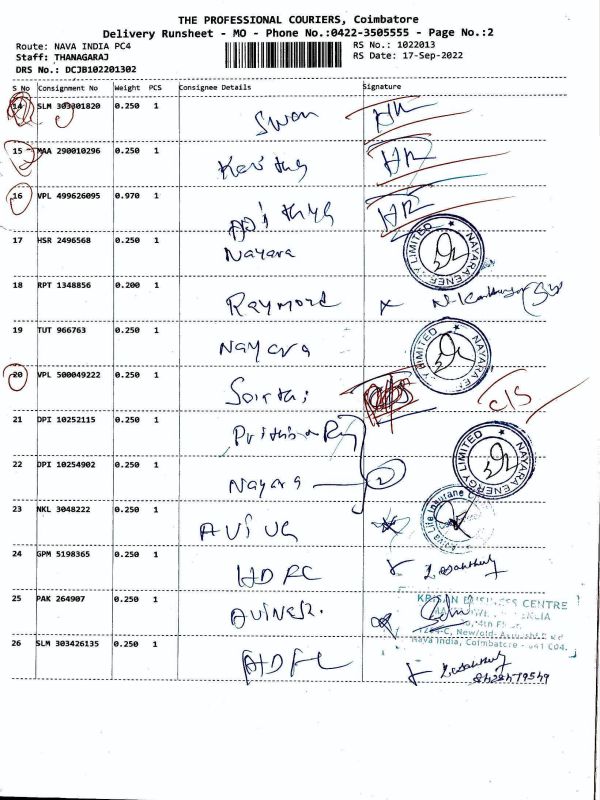 THE PROFESSIONAL COURIERS, Coimbatore
Delivery Runsheet - MO - Phone No.:0422-3505555 - Page No.:2
Route: NAVA INDIA PC4 RS No.: 1022013
Staff: THANAGARAJ RS Date: 17-Sep-2022
DRS No.: DCJB102201302
S No Consignment No Weight PCS Consignee Details Signature
14 SLM 303301820 0.250 1
15 MAA 290010296 0.250 1
16 VPL 499626095 0.970 1
17 HSR 2496568 0.250 1 Nayara
NAYARA ENERGY LIMITED
18 RPT 1348856 0.200 1 Raymond
19 TUT 966763 0.250 1 Nayara
NAYARA ENERGY LIMITED
20 VPL 500049222 0.250 1 C/S
21 DPI 10252115 0.250 1
22 DPI 10254902 0.250 1 Nayara 2
NAYARA ENERGY LIMITED
23 NKL 3048222 0.250 1 AVIVA
Aviva Life Insurance
24 GPM 5198365 0.250 1 HDFC
25 PAK 264907 0.250 1
KRISAN BUSINESS CENTRE
4th Floor,
Nava India, Coimbatore - 641 004.
26 SLM 303426135 0.250 1 HDFC